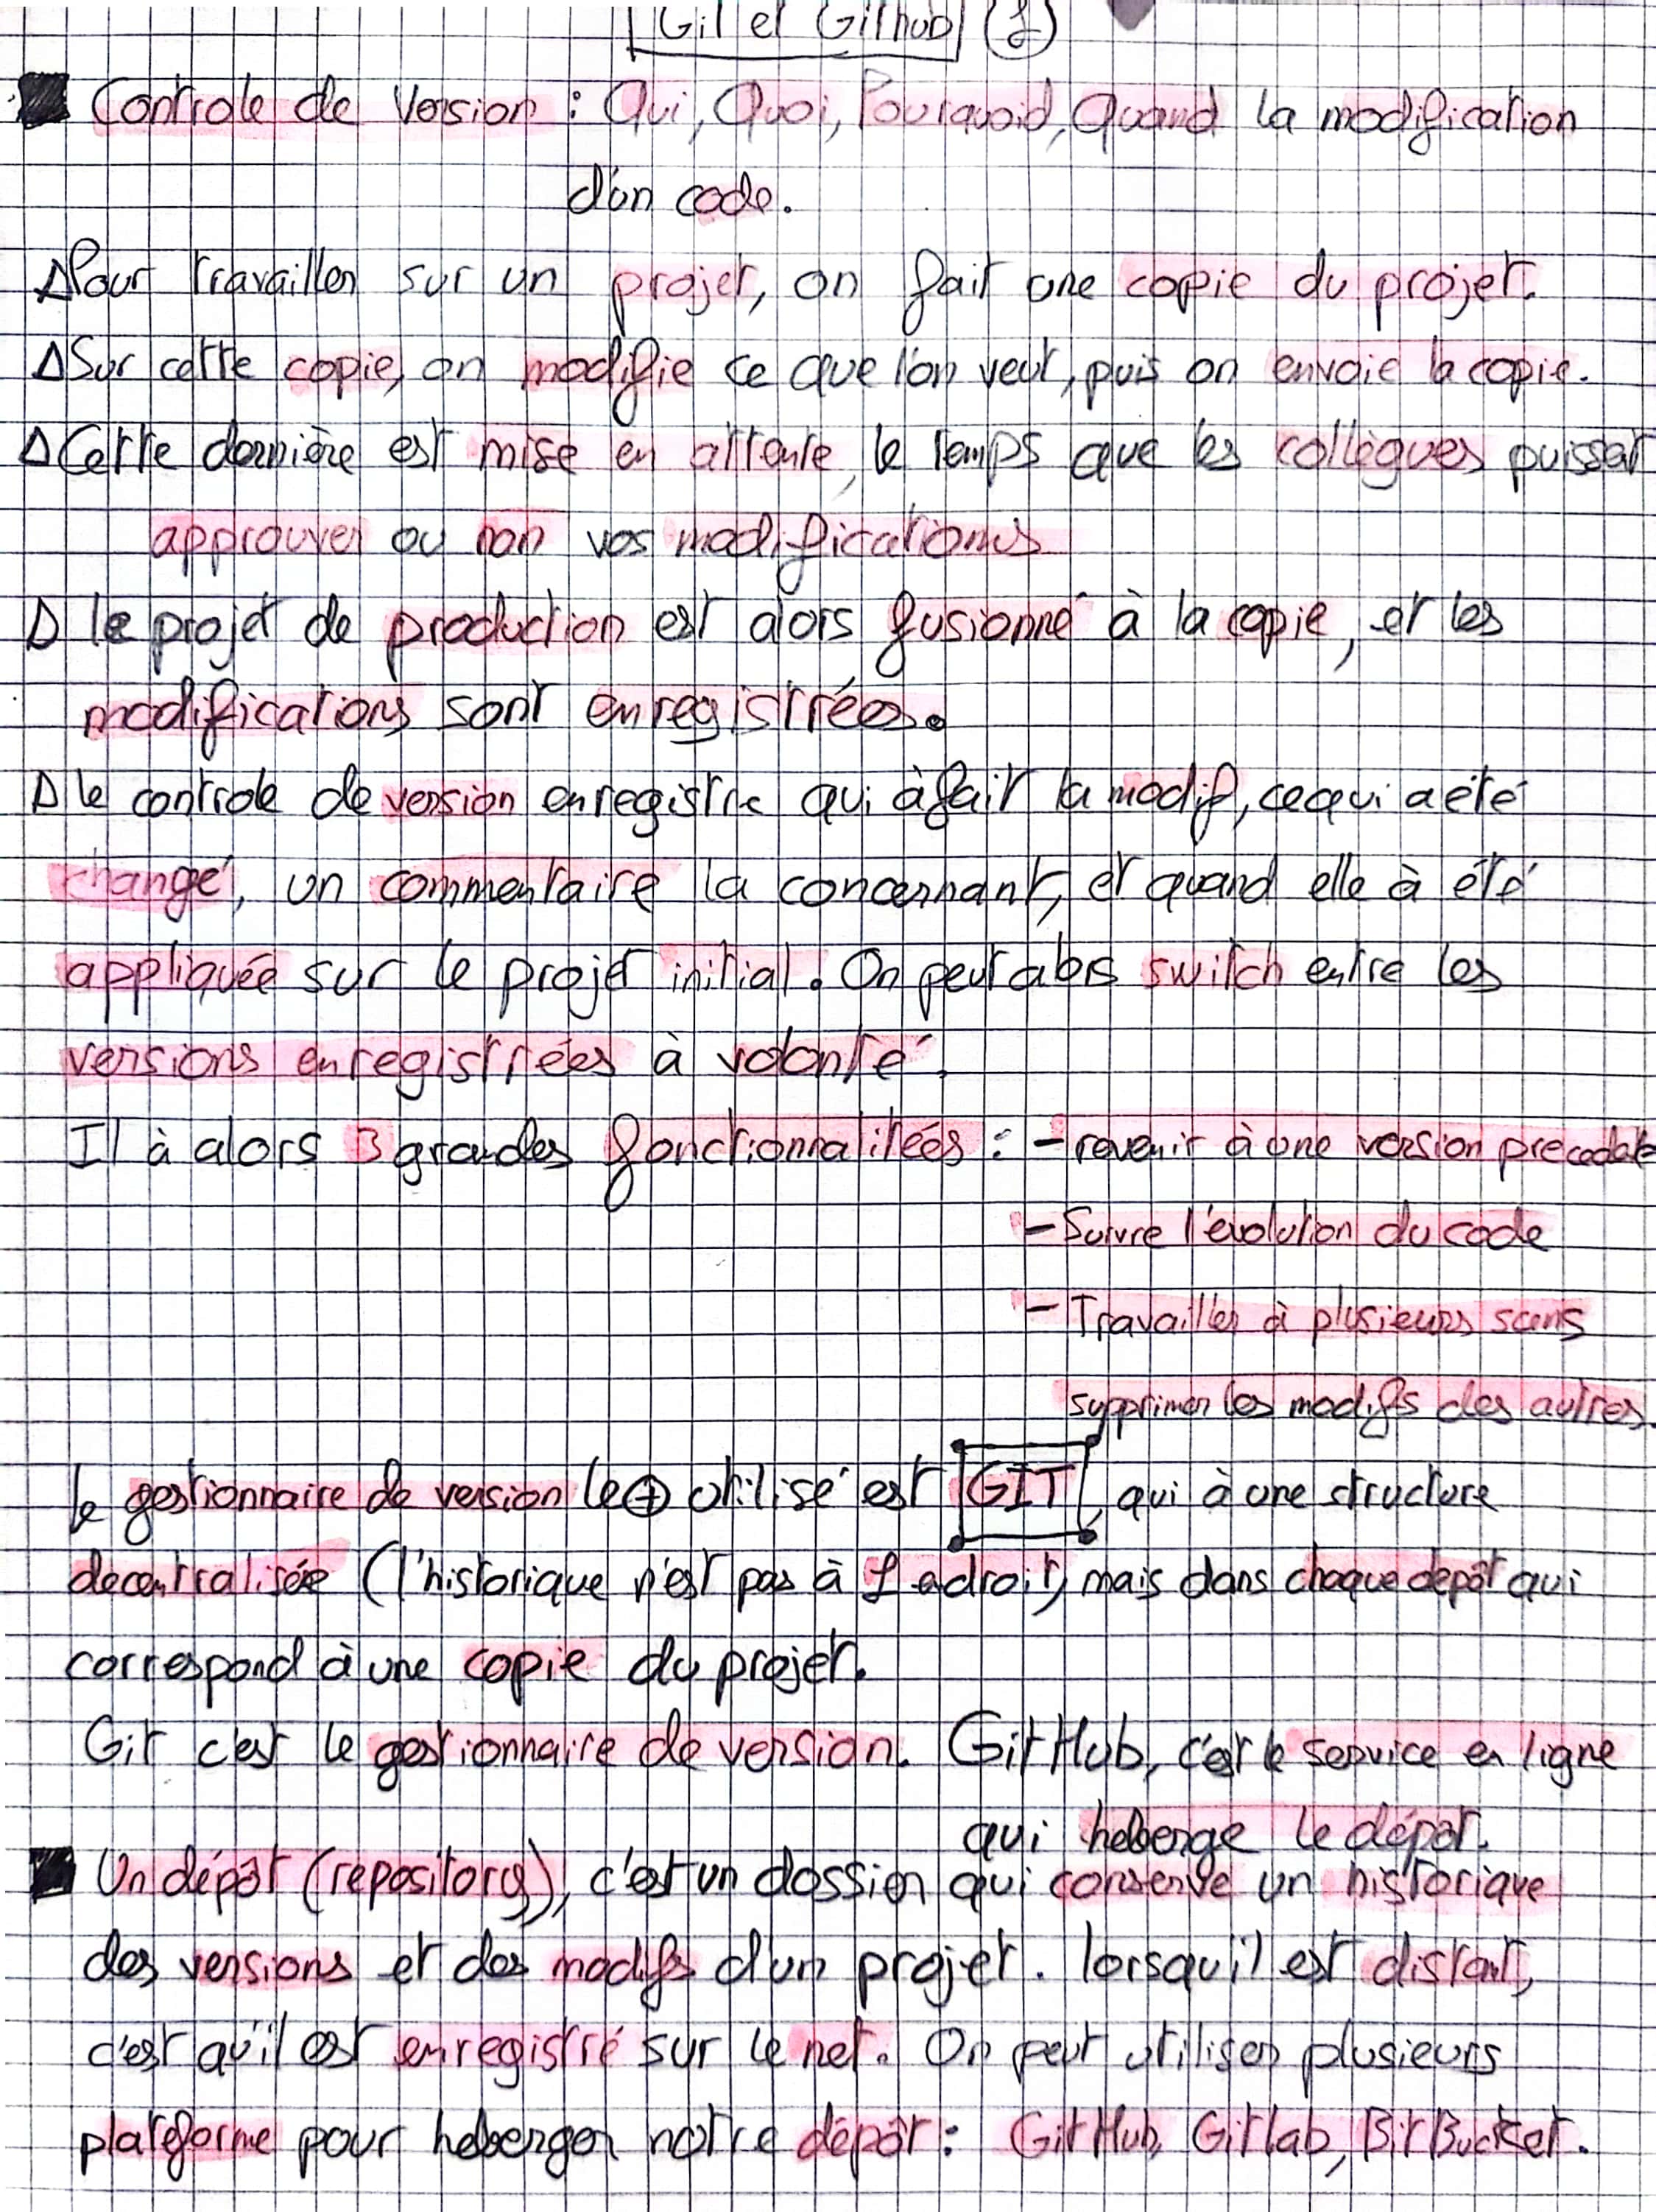 Git et Github (1)
Controle de version : Qui, Quoi, Pourquoi, Quand la modification
d'un code.
Pour travailler sur un projet, on fait une copie du projet.
Sur cette copie, on modifie ce que l'on veut, puis on envoie la copie.
Cette dernière est mise en attente, le temps que les collègues puissent
approuver ou non vos modifications
le projet de production est alors fusionné à la copie, et les
modifications sont enregistrées.
le controle de version enregistre qui à fait la modif, ce qui a été
changé, un commentaire la concernant, et quand elle à été
appliquée sur le projet initial. On peut alors switch entre les
versions enregistrées à volonté.
Il à alors 3 grandes fonctionnalitées : - revenir à une version precedente
- Suivre l'évolution du code
- Travailler à plusieurs sans
supprimer les modifs des autres.
le gestionnaire de version le + utilisé est GIT, qui à une structure
decentralisée (l'historique n'est pas à 1 endroit, mais dans chaque depôt qui
correspond à une copie du projet.
Git c'est le gestionnaire de version. GitHub, c'est le service en ligne
qui heberge le dépôt.
Un dépôt (repository), c'est un dossier qui conserve un historique
des versions et des modifs d'un projet. lorsqu'il est distant,
c'est qu'il est enregistré sur le net. On peut utiliser plusieurs
plateforme pour heberger notre dépôt : GitHub, Gitlab, BitBucket.